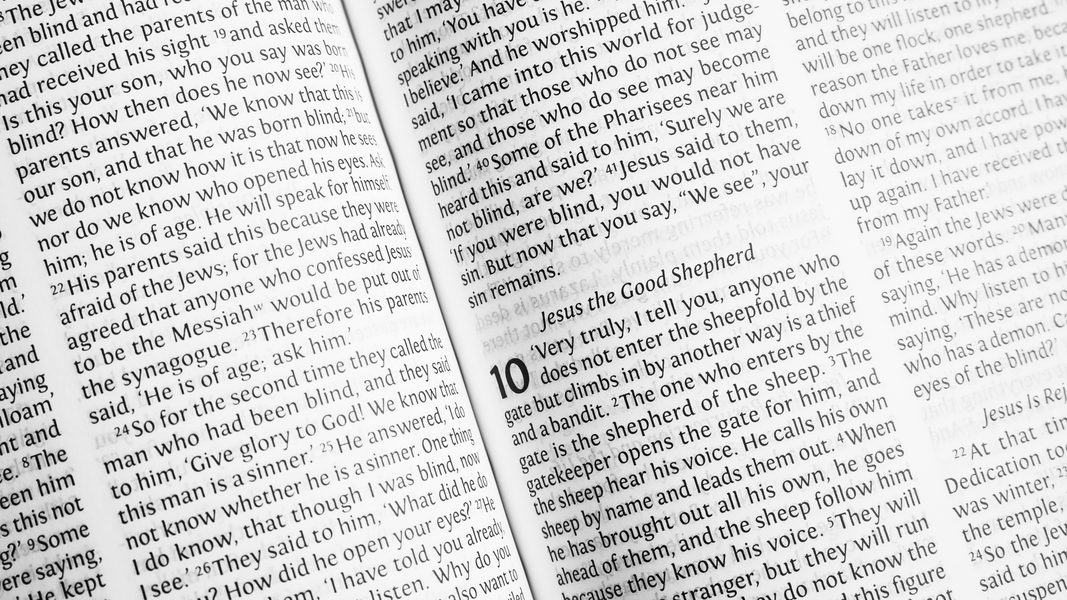 g
m
ld.'
the
and
aying,
lloam
nt and
e.' 8 The
een him
s this not
g?' 9 Some
ere saying,
He kept
The Jew
een blind and had rec
hey called the parents of the man who
had received his sight 19 and asked them
Is this your son, who you say was born
blind? How then does he now see?' 20 His
parents answered, 'We know that this is
our son, and that he was born blind; 21 but
we do not know how it is that now he sees,
nor do we know who opened his eyes. Ask
him; he is of age. He will speak for himself.'
22 His parents said this because they were
afraid of the Jews; for the Jews had already
agreed that anyone who confessed Jesus
to be the Messiah would be put out of
the synagogue. 23 Therefore his parents
said, 'He is of age; ask him.'
24 So for the second time they called the
man who had been blind, and they said
to him, 'Give glory to God! We know that
this man is a sinner.' 25 He answered, 'I do
not know whether he is a sinner. One thing
I do know, that though I was blind, now
I see.' 26 They said to him, 'What did he do
? How did he open your eyes?' 27 He
em, 'I have told you already,
listen. Why do you
also want to
swere
that I may
to him, 'You have
speaking with you is he.'
I believe.' And he worshipped him.
said, 'I came into this world for judge-
ment so that those who do not see may
see, and those who do see may become
blind.' 40 Some of the Pharisees near him
heard this and said to him, 'Surely we are
not blind, are we?' 41 Jesus said to them,
'If you were blind, you would not have
sin. But now that you say, "We see", your
sin remains.
Jesus the Good Shepherd
10 'Very truly, I tell you, anyone who
does not enter the sheepfold by the
gate but climbs in by another way is a thief
and a bandit. 2 The one who enters by the
gate is the shepherd of the sheep. 3 The
gatekeeper opens the gate for him, and
the sheep hear his voice. He calls his own
sheep by name and leads them out. 4 When
he has brought out all his own, he goes
ahead of them, and the sheep follow him
because they know his voice. 5 They will
stranger, but they will run
do not know the
this figure
belong to this
and they will listen to my
will be one flock, one shepherd.
reason the Father loves me, beca
down my life in order to take it
18 No one takes it from me,
down of my own accord. I hav
lay it down, and I have pow
up again. I have received th
from my Father.'
19 Again the Jews were d
of these words. 20 Man
saying, 'He has a demon
mind. Why listen to hi
saying, 'These are no
who has a demon. Ca
eyes of the blind?'
Jesus Is Rej
22 At that tim
Dedication to
was winter, 23
the temple,
24 So the Jew
said to him
suspen